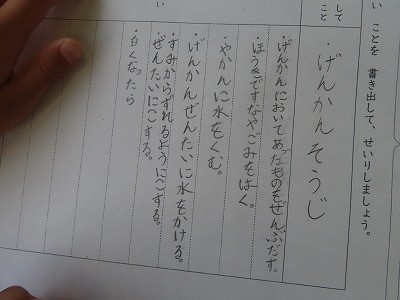 い ことを 書き出して、せいりしましょう。
して
こと
・げんかんそうじ
・げんかんにおいてあたものをぜんぶだす。
・ほうきですなやごみをはく。
・やかんに水をくむ。
・げんかんぜんたいに水をかける。
・すみからずれるようにこする。
ぜんたいにこする。
・白くなったら
い